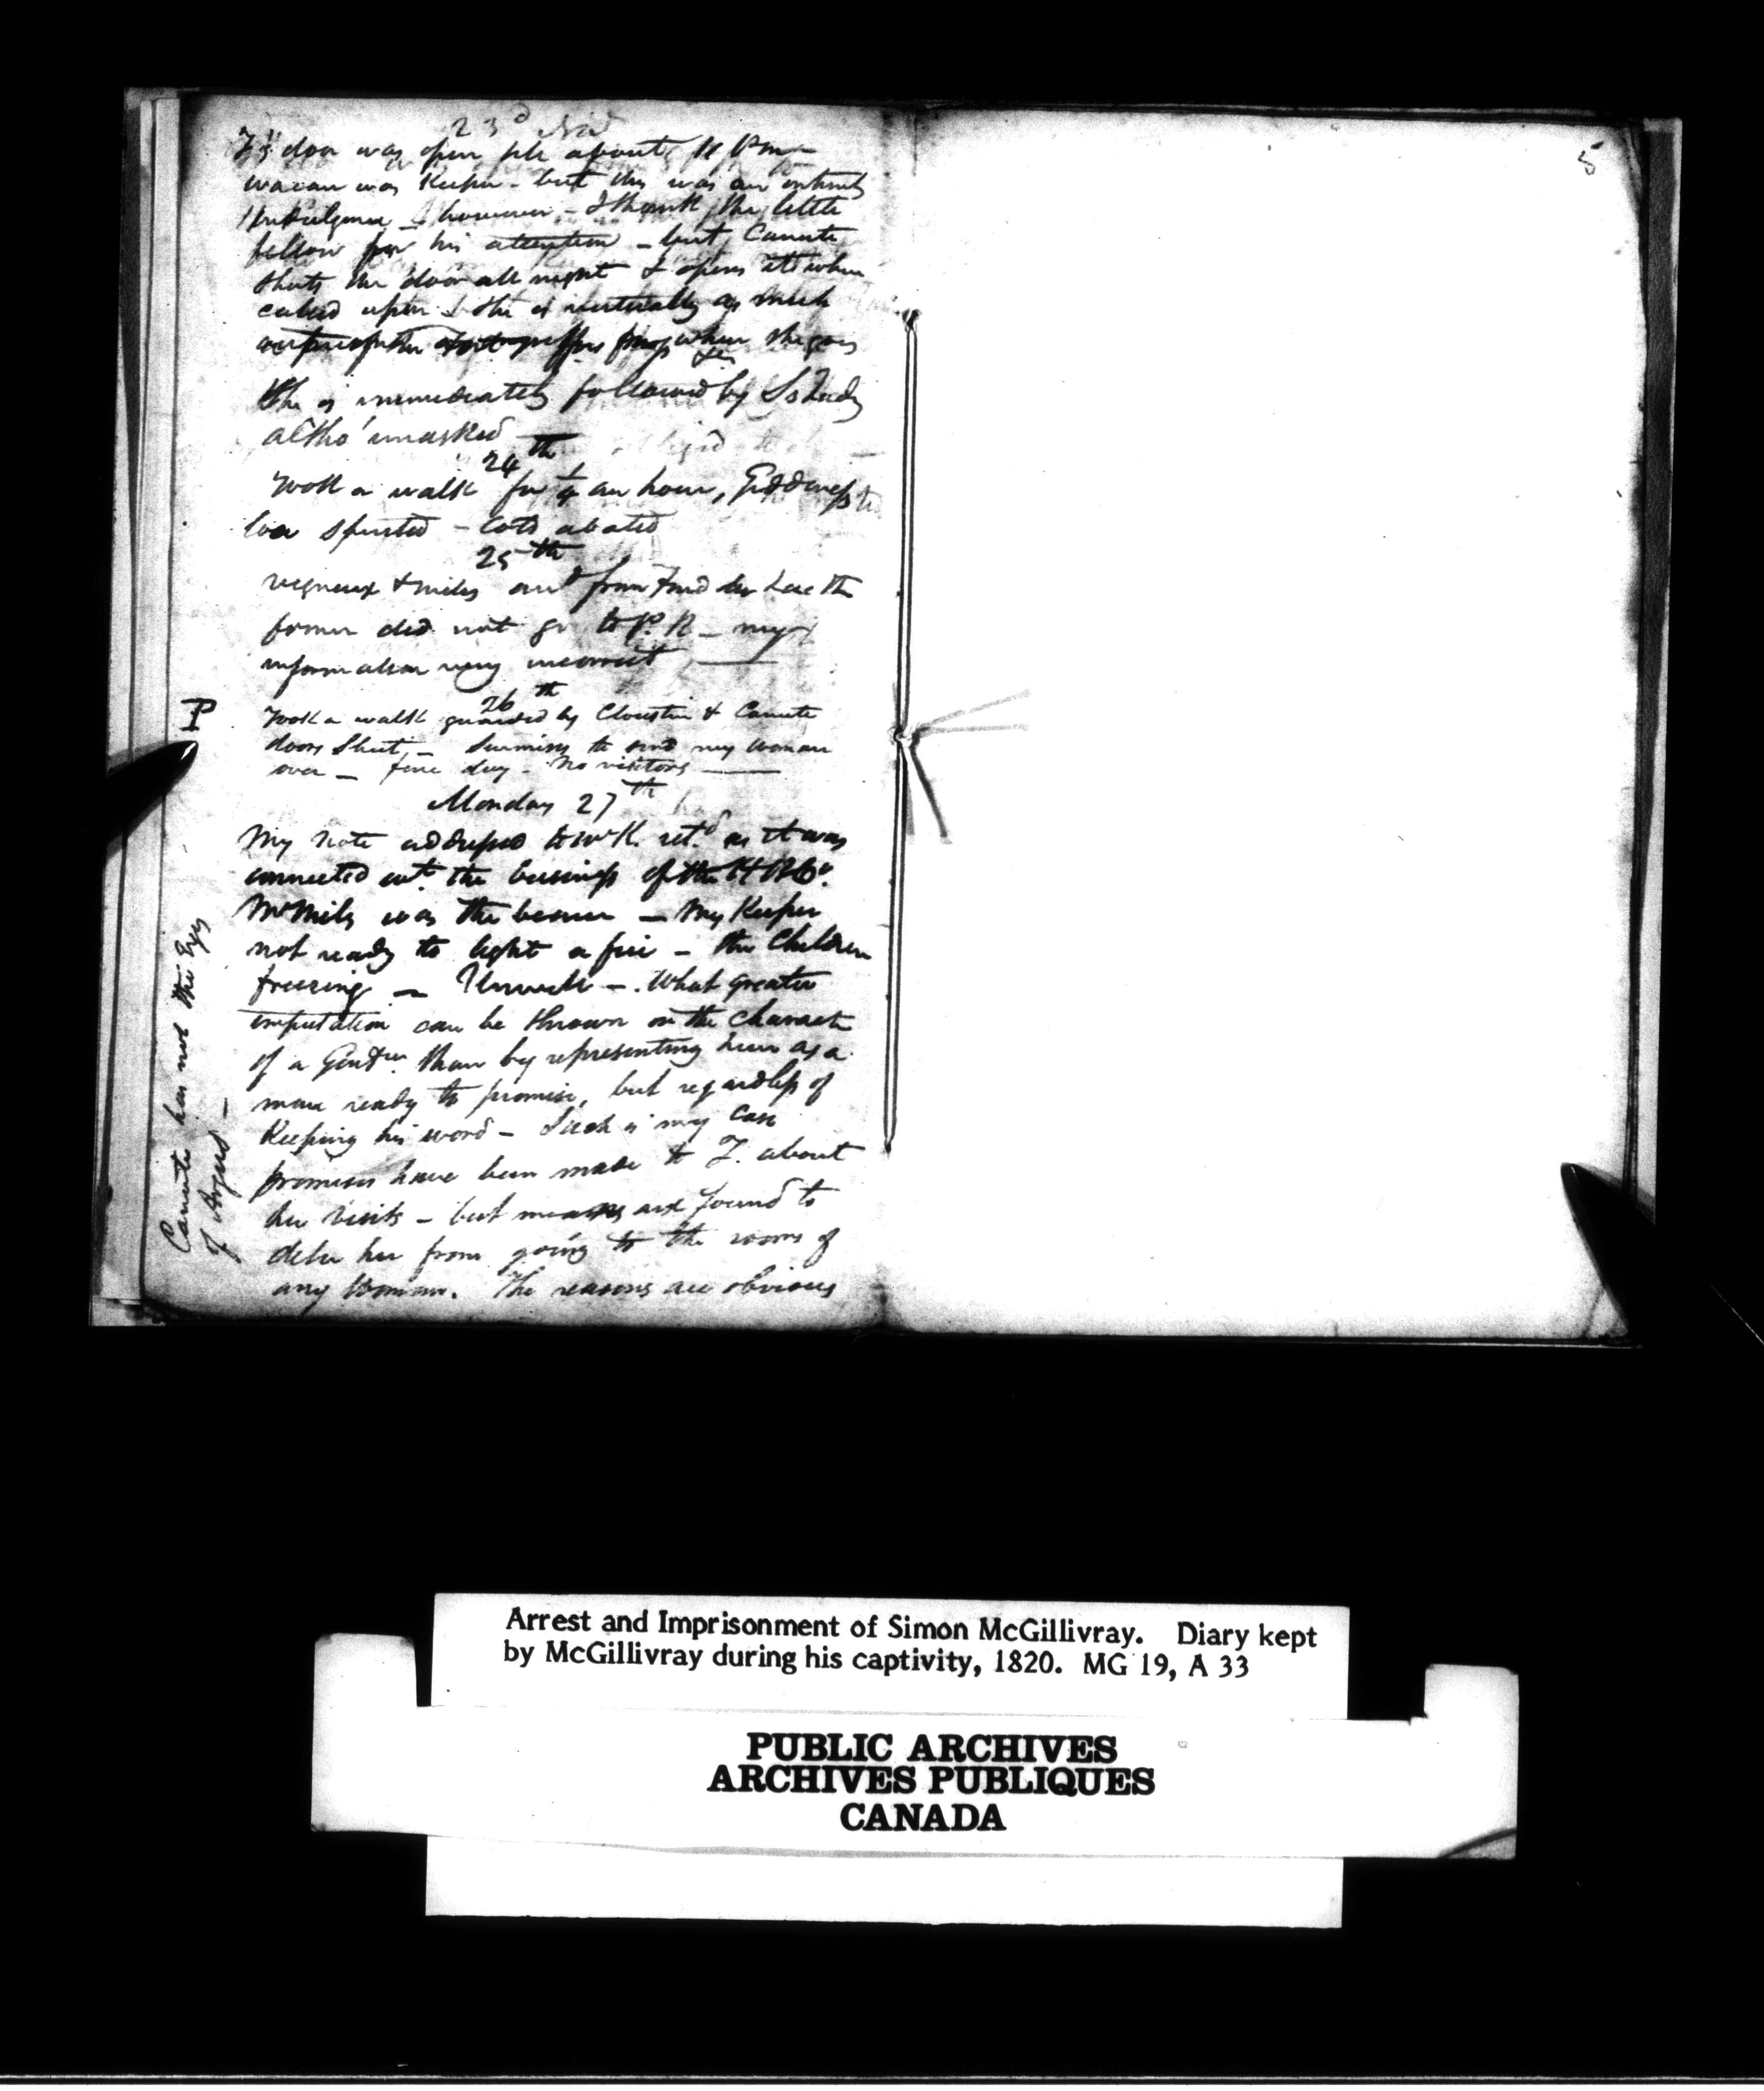 23d
door was open till about 11 Pm -
was Keeper - but this was an
Indulgence - however - I thank the little
fellow for his attention - but Canute
shuts the door all night & opens it when
called upon - She is as much
when she goes
She is immediately followed by Lady
altho' unasked
24th
Took a walk for 1/4 an hour, Giddiness
low spirited - Cold abated
25th
vigneux & miles arrd from Fond du Lac the
former did not go to P. R - my
information very incorrect
26th
Took a walk guarded by Clouston & Canute
doors Shut, - Surmises to send my woman
over - fine day - No visitors
Monday 27th
My note addressed to Mr K. retd as it was
connected wt the business of the H B Co.
Mr Miles was the bearer - My Keeper
not ready to light a fire - the Children
freezing - Unwell - What greater
imputation can be thrown on the character
of a Gentn than by representing him as a
man ready to promise, but regardless of
Keeping his word - Such is my Case
promises have been made to J. about
her visits - but means are found to
deter her from going to the rooms of
any Woman. The reasons are obvious
P
Canute has not the Eyes
of Argus -
5
Arrest and Imprisonment of Simon McGillivray. Diary kept
by McGillivray during his captivity, 1820. MG 19, A 33
PUBLIC ARCHIVES
ARCHIVES PUBLIQUES
CANADA